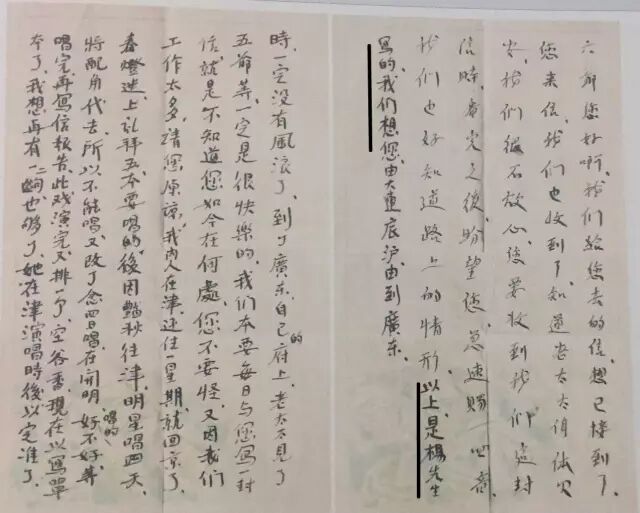 六爺您好啊、我們給您去的信想已接到了、
您來信、我們也收到了、知道老太太身体欠
安、我們很不放心、您要收到我們這封
信時、看完之後盼望您急速賜一回音、
我們也好知道路上的情形、以上是楊先生
寫的、我們想您由大連辰沪由到廣东、
時、一定沒有風浪了、到了廣东自己的府上、老太太見了
五爺等、一定是很快樂的、我們本要每日与您寫一封
信、就是不知道您如今在何處、您不要怪、又因我們
工作太多、請您原諒、我内人在津、还住一星期、就回京了、
春燈迷上礼拜五本要唱的、後因艷秋往津明星唱四天、
將配角代去、所以不能唱、又改了念四日唱在開明、唱的好不好等
唱完再寫信報告、此戏演完又排一了、空谷香現在以寫單
本了、我想再有二齣也够了、她在津演唱時後以定准了、